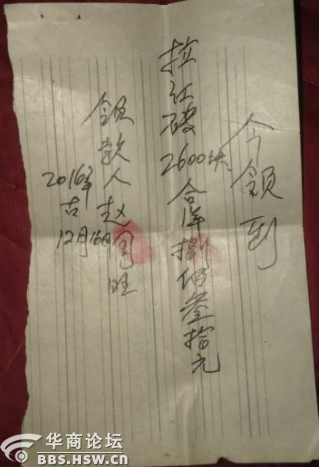 今领到
拉红砖2600块合洋捌佰叁拾元
领款人赵周旺
2016年
古12月16日
华商论坛
BBS.HSW.CN